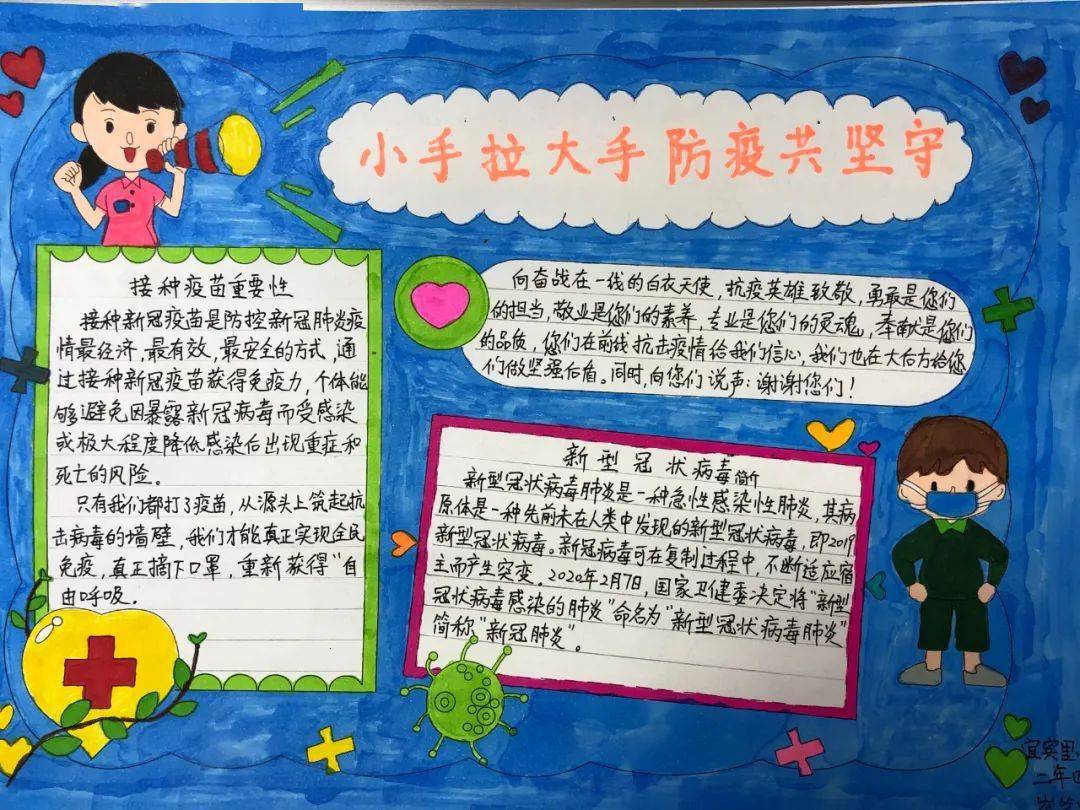 小手拉大手防疫共坚守
接种疫苗重要性
接种新冠疫苗是防控新冠肺炎疫
情最经济,最有效,最安全的方式,通
过接种新冠疫苗获得免疫力,个体能
够避免因暴露新冠病毒而受感染
或极大程度降低感染后出现重症和
死亡的风险。
只有我们都打了疫苗,从源头上筑起抗
击病毒的墙壁,我们才能真正实现全民
免疫,真正摘下口罩,重新获得“自
由呼吸。
向奋战在一线的白衣天使,抗疫英雄致敬,勇敢是您们
的担当,敬业是您们的素养,专业是您们的灵魂,奉献是您们
的品质,您们在前线抗击疫情给我们信心,我们也在大后方给您
们做坚强后盾。同时,向您们说声:谢谢您们!
新型冠状病毒简介
新型冠状病毒肺炎是一种急性感染性肺炎,其病
原体是一种先前未在人类中发现的新型冠状病毒,即2019
新型冠状病毒。新冠病毒可在复制过程中,不断适应宿
主而产生突变。2020年2月7日,国家卫健委决定将“新型
冠状病毒感染的肺炎”命名为“新型冠状病毒肺炎”
简称“新冠肺炎”。
宜宾里
二年